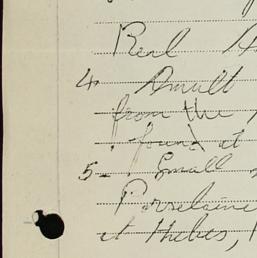 Real
4 Small
from the
found at
5 - Small
Porcelaine
at Thebes,